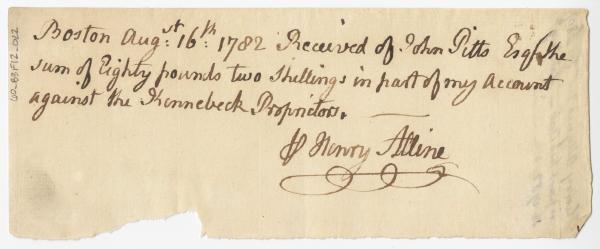 Boston Augst. 16th: 1782 Received of John Pitts Esqr. the
sum of Eighty pounds two Shillings in part of my Account
against the Kennebeck Proprietors.
Henry Alline